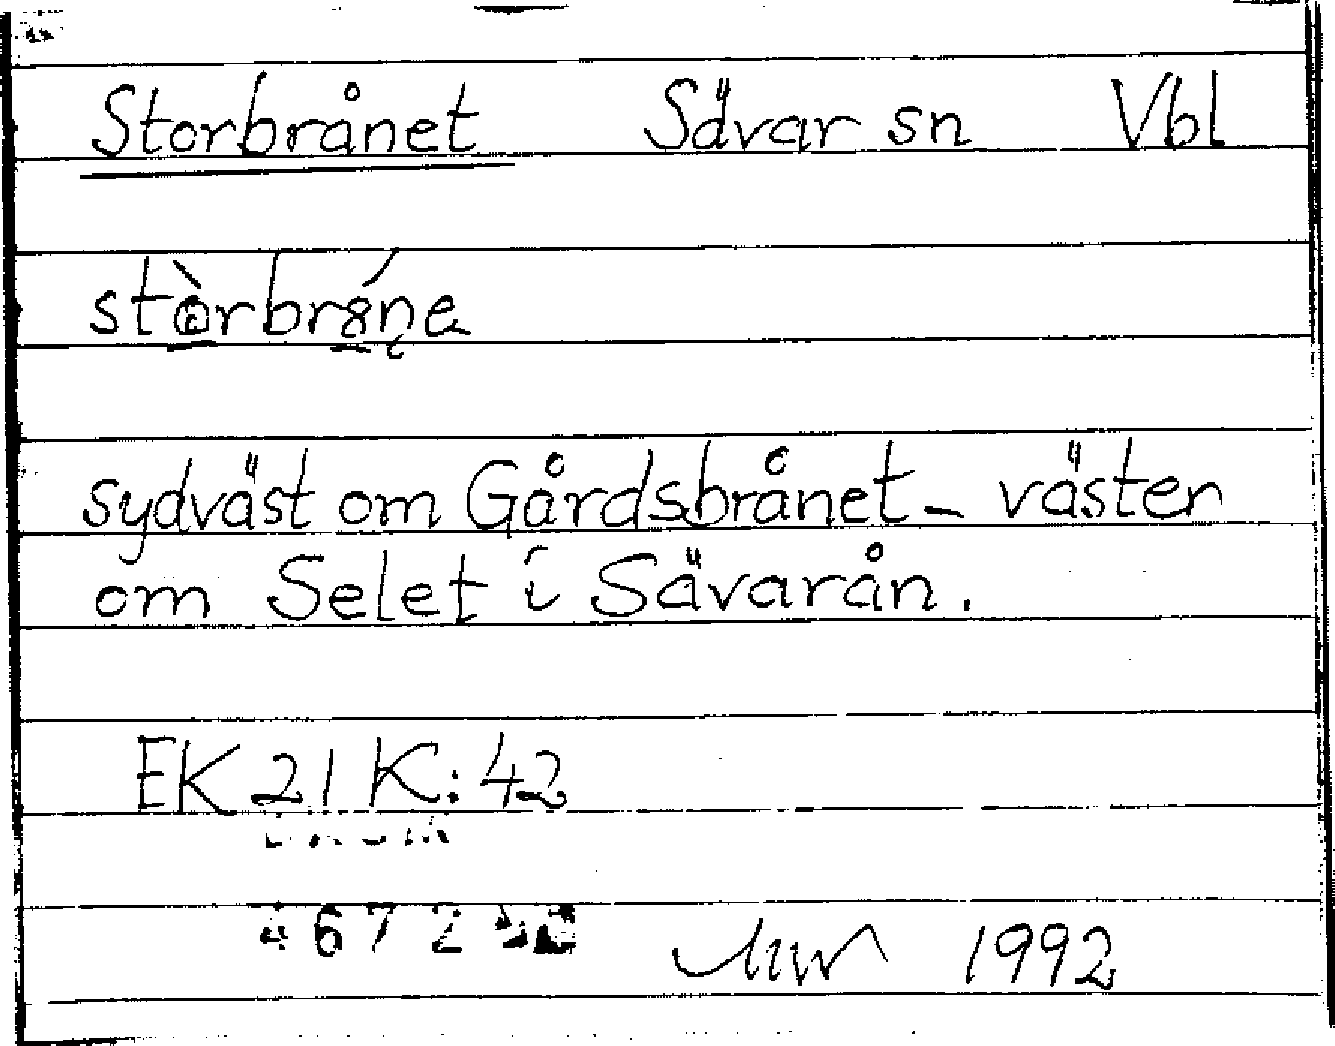 Storbrånet Sävar sn Vbl
sydväst om Gårdsbrånet - väster
om Selet i Sävarån.
EK 21 K: 42
1992